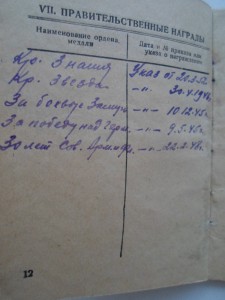 VII. ПРАВИТЕЛЬСТВЕННЫЕ НАГРАДЫ
Наименование ордена, медали
Дата и № приказа или указа о награждении
Кр. Знамя Указ от
Кр. Звезда —"—
За боевые Заслуги —"— 10.12.45г.
За победу над Герм. —"— 9.5.45г.
30 лет Сов. Армии —"— 22.2.48г.
12